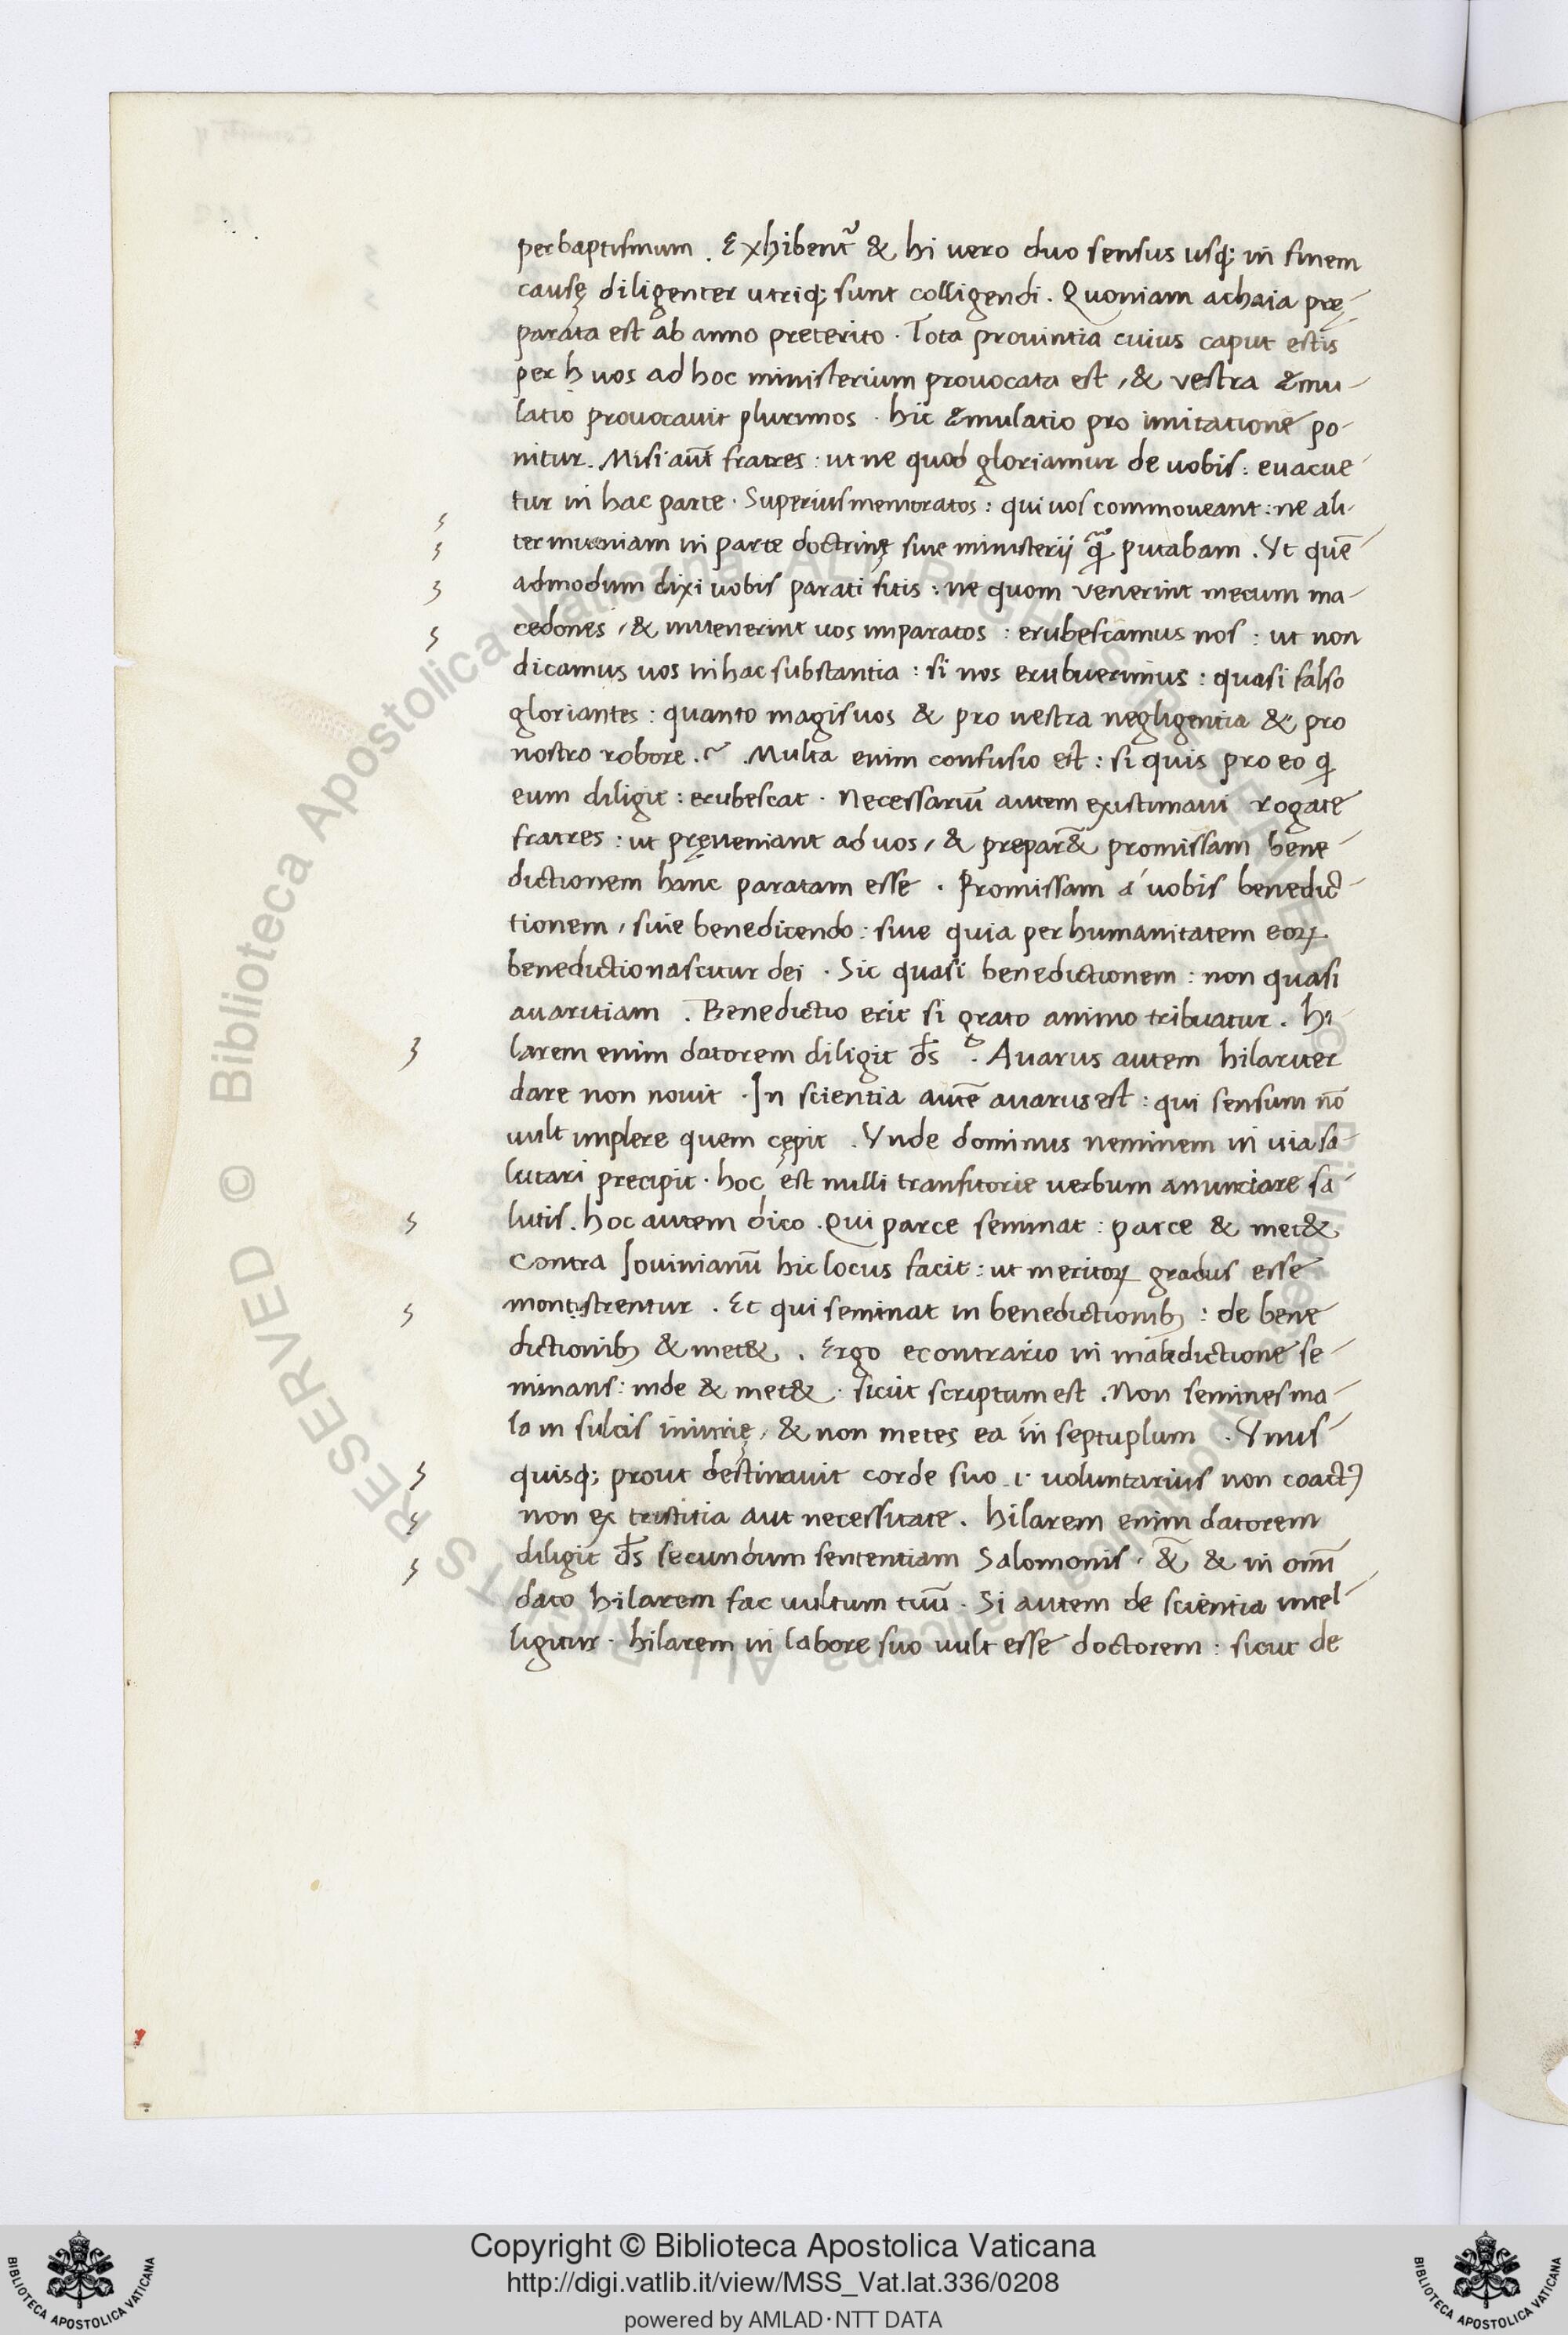 per baptismum . Exhibent᷑ & hi vero duo sensus usq; in finem
causę diligenter utriq; sunt colligendi . Quoniam achaia prę-
parata est ab anno preterito . Tota provintia cuius caput estis
per h vos ad hoc ministerium provocata est , & vestra æmu-
latio provocavit plurimos . hic æmulatio pro imitatione po-
nitur . Misi aūt fratres : ut ne quod gloriamur de vobis : evacue-
tur in hac parte . Superius memoratos : qui vos commoveant : ne ali-
ter inveniam in parte doctrinę sive ministerij putabam . Vt quē-
admodum dixi vobis parati sitis : ne quom venerint mecum ma-
cedones , & invenerint vos imparatos : erubescamus nos : ut non
dicamus vos in hac substantia : si nos erubuerimus : quasi falso
gloriantes : quanto magis vos & pro vestra negligentia & pro
nostro robore . Multa enim confusio est : si quis pro eo q
eum diligit : erubescat . Necessariū autem existimavi rogate
fratres : ut pręveniant ad vos , & prepar&̄ promissam bene-
dictionem hanc paratam esse . Promissam á vobis benedic-
tionem , sive benedicendo : sive quia per humanitatem eoꝝ
benedictio nascitur dei . Sic quasi benedictionem : non quasi
avaritiam . Benedictio erit si grato animo tribuatur . hi-
larem enim datorem diligit d̄s . Avarus autem hilariter
dare non novit . In scientia autē avarus est : qui sensum nō
vult implere quem cępit . Vnde dominus neminem in via sa-
lutari precipit . hoc est nulli transitorie verbum anunciare sa-
lutis . hoc autem dico . Qui parce seminat : parce & met&
Contra Jovinianū hic locus facit : ut meritoꝝ gradus esse
monstrentur . Et qui seminat in benedictionib; : de bene-
dictionib; & met& . Ergo econtrario in maledictione se-
minans : inde & met& . sicut scriptum est . Non semines ma-
la in sulcis iniurię , & non metes ea in septuplum . Vnus-
quisq; prout destinavit corde suo .i. voluntarius non coactꝰ
non ex tristitia aut necessitate . hilarem enim datorem
diligit d̄s secundum sententiam Salomonis , &̄ & in omī
dato hilarem fac vultum tuū . Si autem de scientia intel-
ligitur . hilarem in labore suo vult esse doctorem : sicut de
Copyright © Biblioteca Apostolica Vaticana
http://digi.vatlib.it/view/MSS_Vat.lat.336/0208
powered by AMLAD·NTT DATA